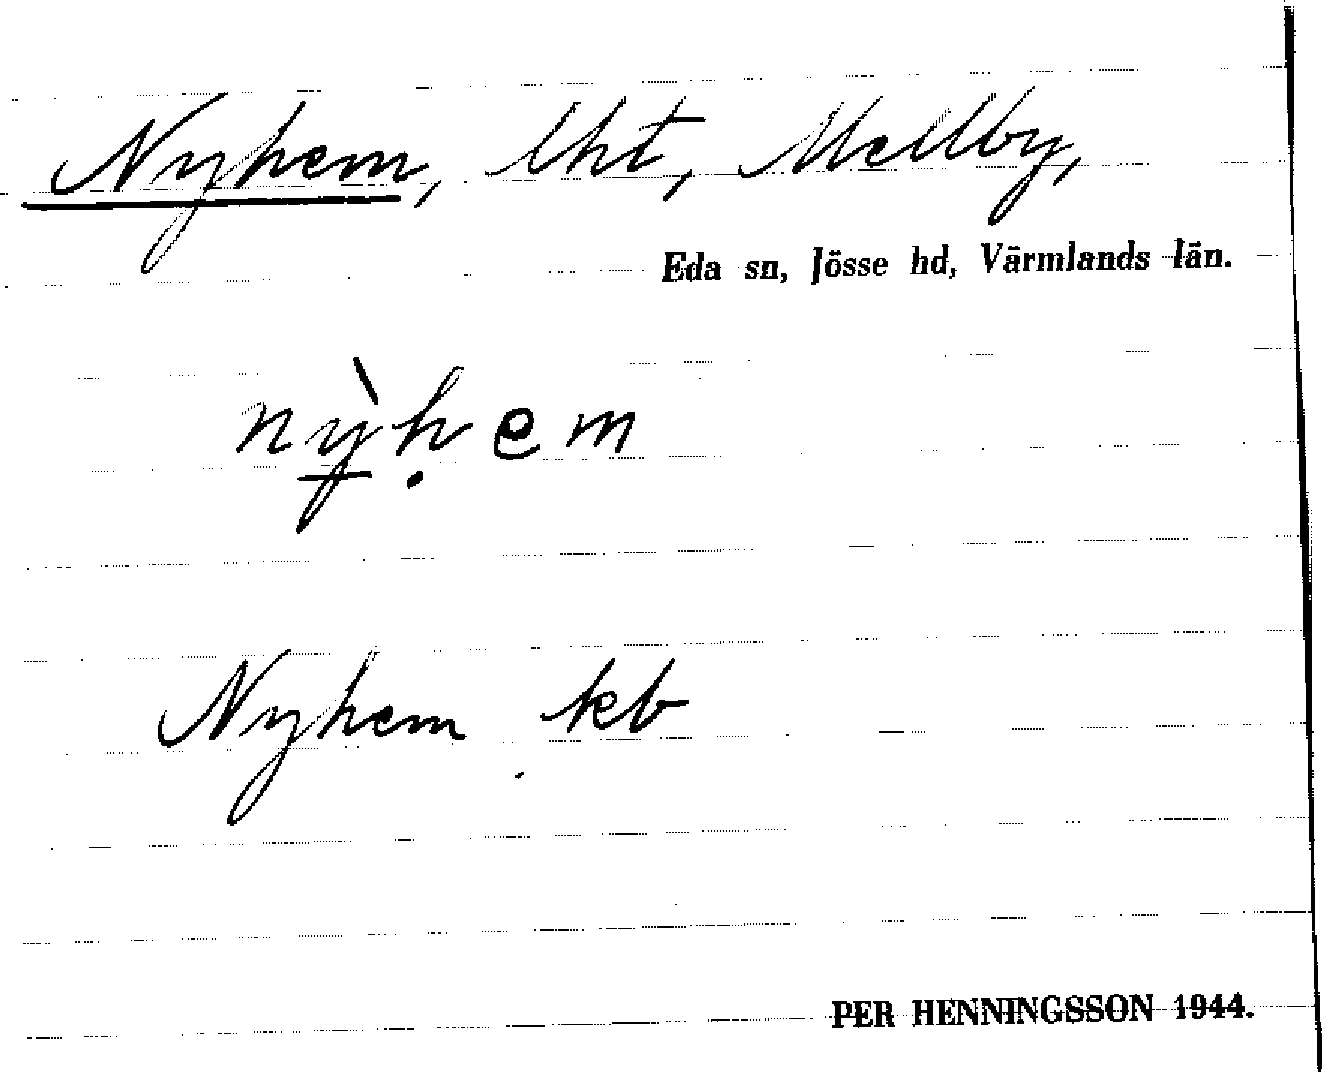 Nyhem, lht, Mellby,
Eda sn, Jösse hd, Värmlands län.
nỳ̱ḥem
Nyhem kb
PER HENNINGSSON 1944.